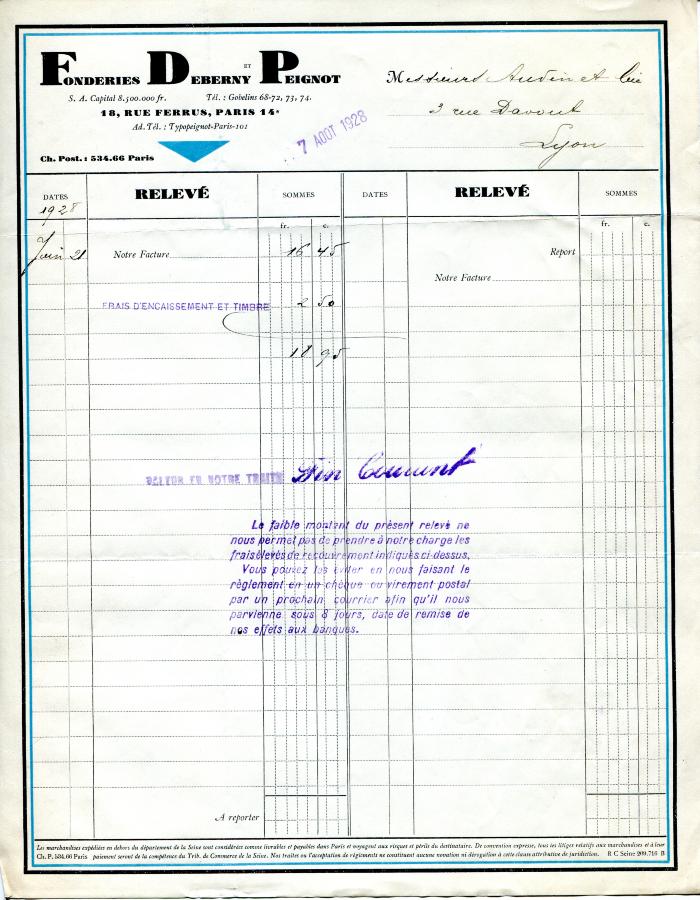 FONDERIES DEBERNY ET PEIGNOT
S. A. Capital 8.500.000 fr. Tél. : Gobelins 68-72, 73, 74.
18, RUE FERRUS, PARIS 14e
Ad. Tél. : Typopeignot-Paris-101
Ch. Post. : 534.66 Paris
7 AOUT 1928
Messieurs Audin et Cie
3 rue Davout
Lyon
DATES RELEVÉ SOMMES DATES RELEVÉ SOMMES
1928
fr. c. fr. c.
Juin 21 Notre Facture 16 45 Report
Notre Facture
FRAIS D'ENCAISSEMENT ET TIMBRE 2 50
18 95
VALEUR EN NOTRE TRAITE Fin Courant
Le faible montant du présent relevé ne
nous permet pas de prendre à notre charge les
frais élevés de recouvrement indiqués ci-dessus.
Vous pouvez les éviter en nous faisant le
règlement en un chèque ou virement postal
par un prochain courrier afin qu'il nous
parvienne sous 8 jours, date de remise de
nos effets aux banques.
A reporter
Les marchandises expédiées en dehors du département de la Seine sont considérées comme livrables et payables dans Paris et voyagent aux risques et périls du destinataire. De convention expresse, tous les litiges relatifs aux marchandises et à leur
Ch. P. 534.66 Paris paiement seront de la compétence du Trib. de Commerce de la Seine. Nos traites ou l'acceptation de règlements ne constituent aucune novation ni dérogation à cette clause attributive de juridiction. R C Seine 209.716 B